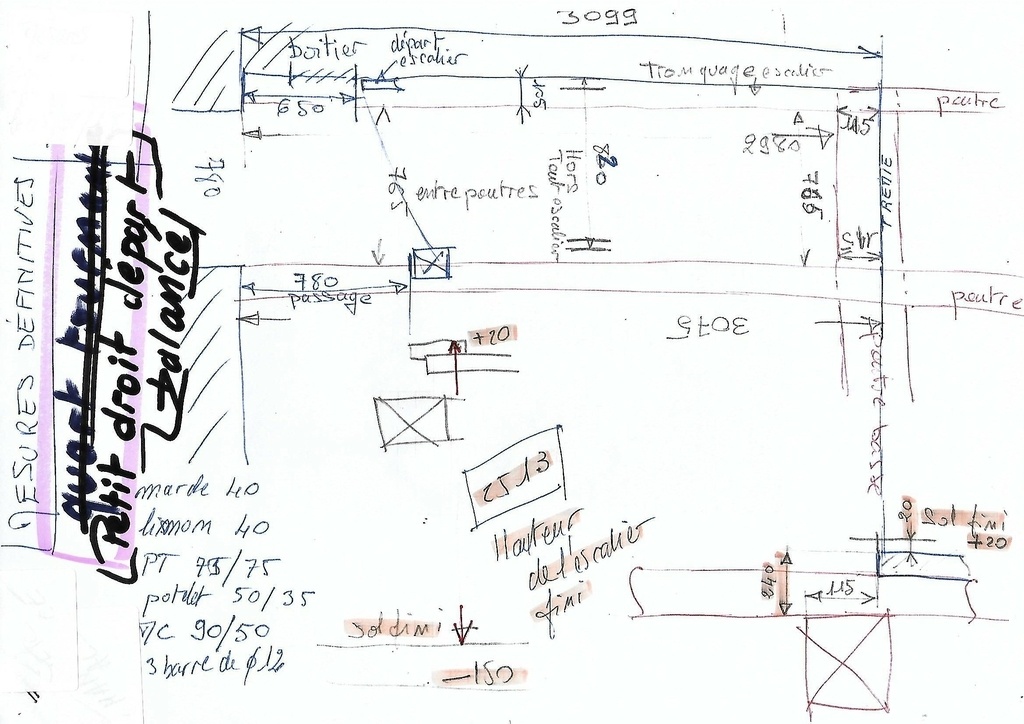 3099
boitier
départ
escalier
Tronquage escalier
650
105
115
poutre
2980
740
765
entre poutres
820
Hors
Tout escalier
785
TREMIE
145
780
passage
poutre
3075
+20
dessous poutre
MESURES DÉFINITIVES
Petit droit départ
balancé
2513
Hauteur
de l'escalier
fini
marche 40
limon 40
PT 75/75
potelet 50/35
MC 90/50
3 barre de φ12
20
Sol fini
+20
240
115
sol fini
-150